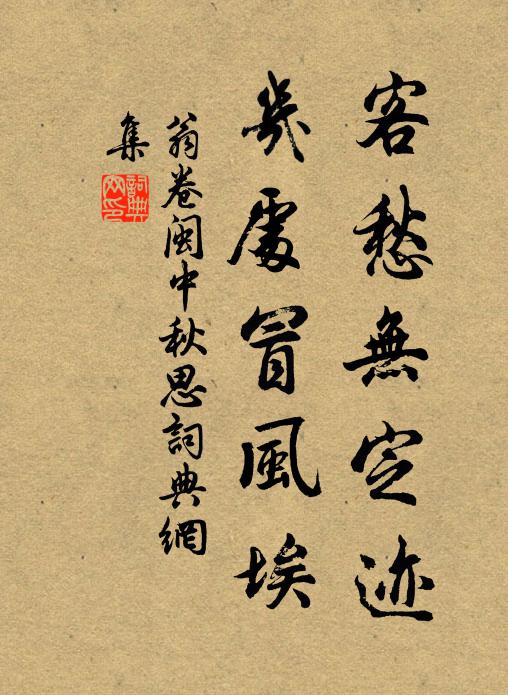 客愁無定迹
幾處冒風埃
翁卷闽中秋思詞典網
集
詞典網印